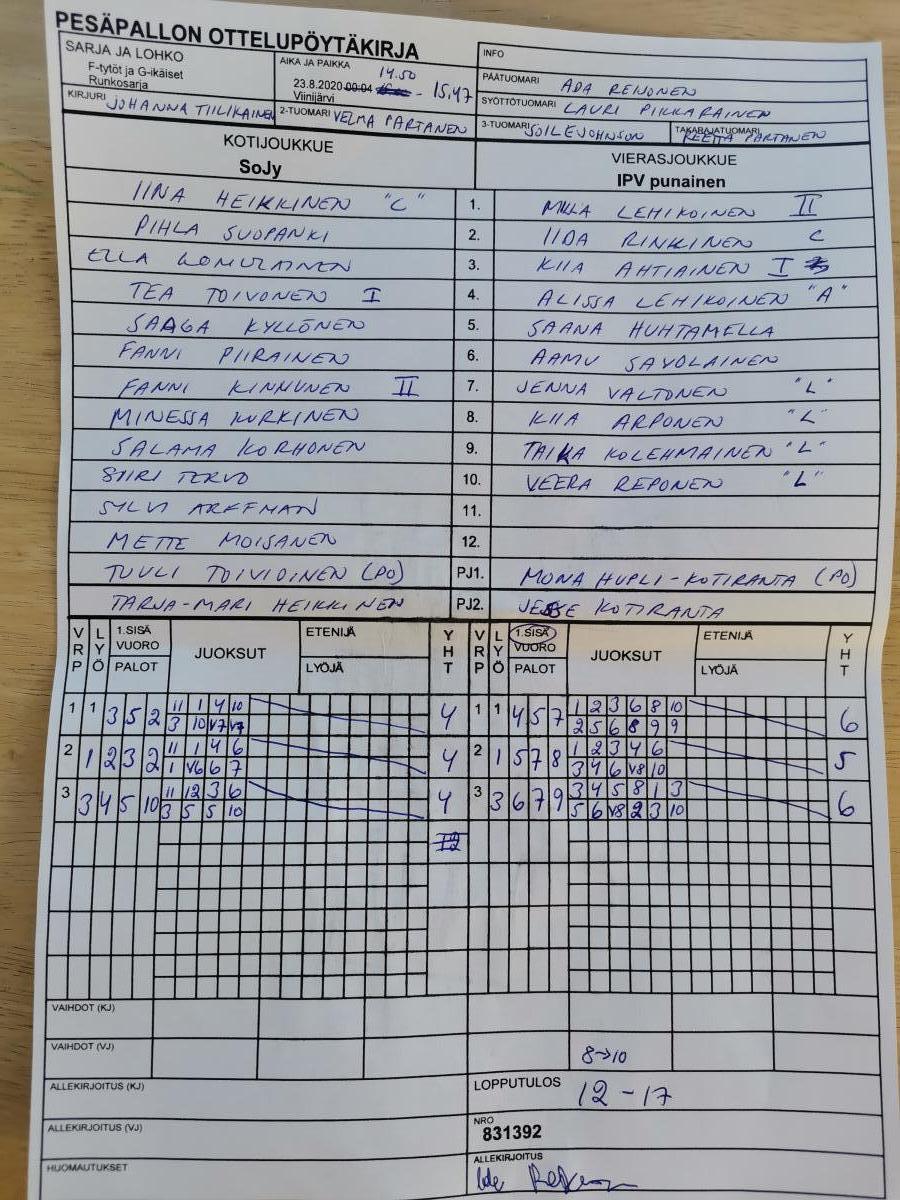 PESÄPALLON OTTELUPÖYTÄKIRJA
SARJA JA LOHKO
F-tytöt ja G-ikäiset
Runkosarja
AIKA JA PAIKKA
14.50
23.8.2020 00:04 - 15,47
Viinijärvi
INFO
PÄÄTUOMARI ADA REIJONEN
SYÖTTÖTUOMARI LAURI PIKKARAINEN
KIRJURI JOHANNA TIILIKAINEN
2-TUOMARI VELMA PARTANEN
3-TUOMARI SOILE JOHNSON
TAKARAJATUOMARI REETTA PARTANEN
KOTIJOUKKUE
SoJy
VIERASJOUKKUE
IPV punainen
IINA HEIKKINEN "C" 1. MILLA LEHIKOINEN II
PIHLA SUOPANKI 2. IIDA RINKINEN C
ELLA KOMULAINEN 3. KIIA AHTIAINEN I
TEA TOIVONEN I 4. ALISSA LEHIKOINEN "A"
SAAGA KYLLÖNEN 5. SAANA HUHTAMELLA
FANNI PIIRAINEN 6. AAMU SAVOLAINEN
FANNI KINNUNEN II 7. JENNA VALTONEN "L"
MINESSA KURKINEN 8. KIIA ARPONEN "L"
SALAMA KORHONEN 9. TAIKA KOLEHMAINEN "L"
SIIRI TERVO 10. VEERA REPONEN "L"
SYLVI ARFFMAN 11.
METTE MOISANEN 12.
TUULI TOIVIOINEN (PO) PJ1. MONA HUPLI-KOTIRANTA (PO)
TARJA-MARI HEIKKINEN PJ2. JESSE KOTIRANTA
VRP LYÖ 1.SISÄ VUORO PALOT JUOKSUT ETENIJÄ LYÖJÄ YHT VRP LYÖ 1.SISÄ VUORO PALOT JUOKSUT ETENIJÄ LYÖJÄ YHT
1 1 3 5 2 11 1 4 10 4 1 1 4 5 7 1 2 3 6 8 10 6
3 10 V7 V7 2 5 6 8 9 9
2 1 2 3 2 11 1 4 6 4 2 1 5 7 8 1 2 3 4 6 5
1 V6 6 7 3 4 6 V8 10
3 3 4 5 10 11 12 3 6 4 3 3 6 7 9 3 4 5 8 1 3 6
3 5 5 10 5 6 V8 2 3 10
12
VAIHDOT (KJ)
VAIHDOT (VJ) 8→10
ALLEKIRJOITUS (KJ)
LOPPUTULOS 12-17
ALLEKIRJOITUS (VJ)
NRO
831392
HUOMAUTUKSET
ALLEKIRJOITUS